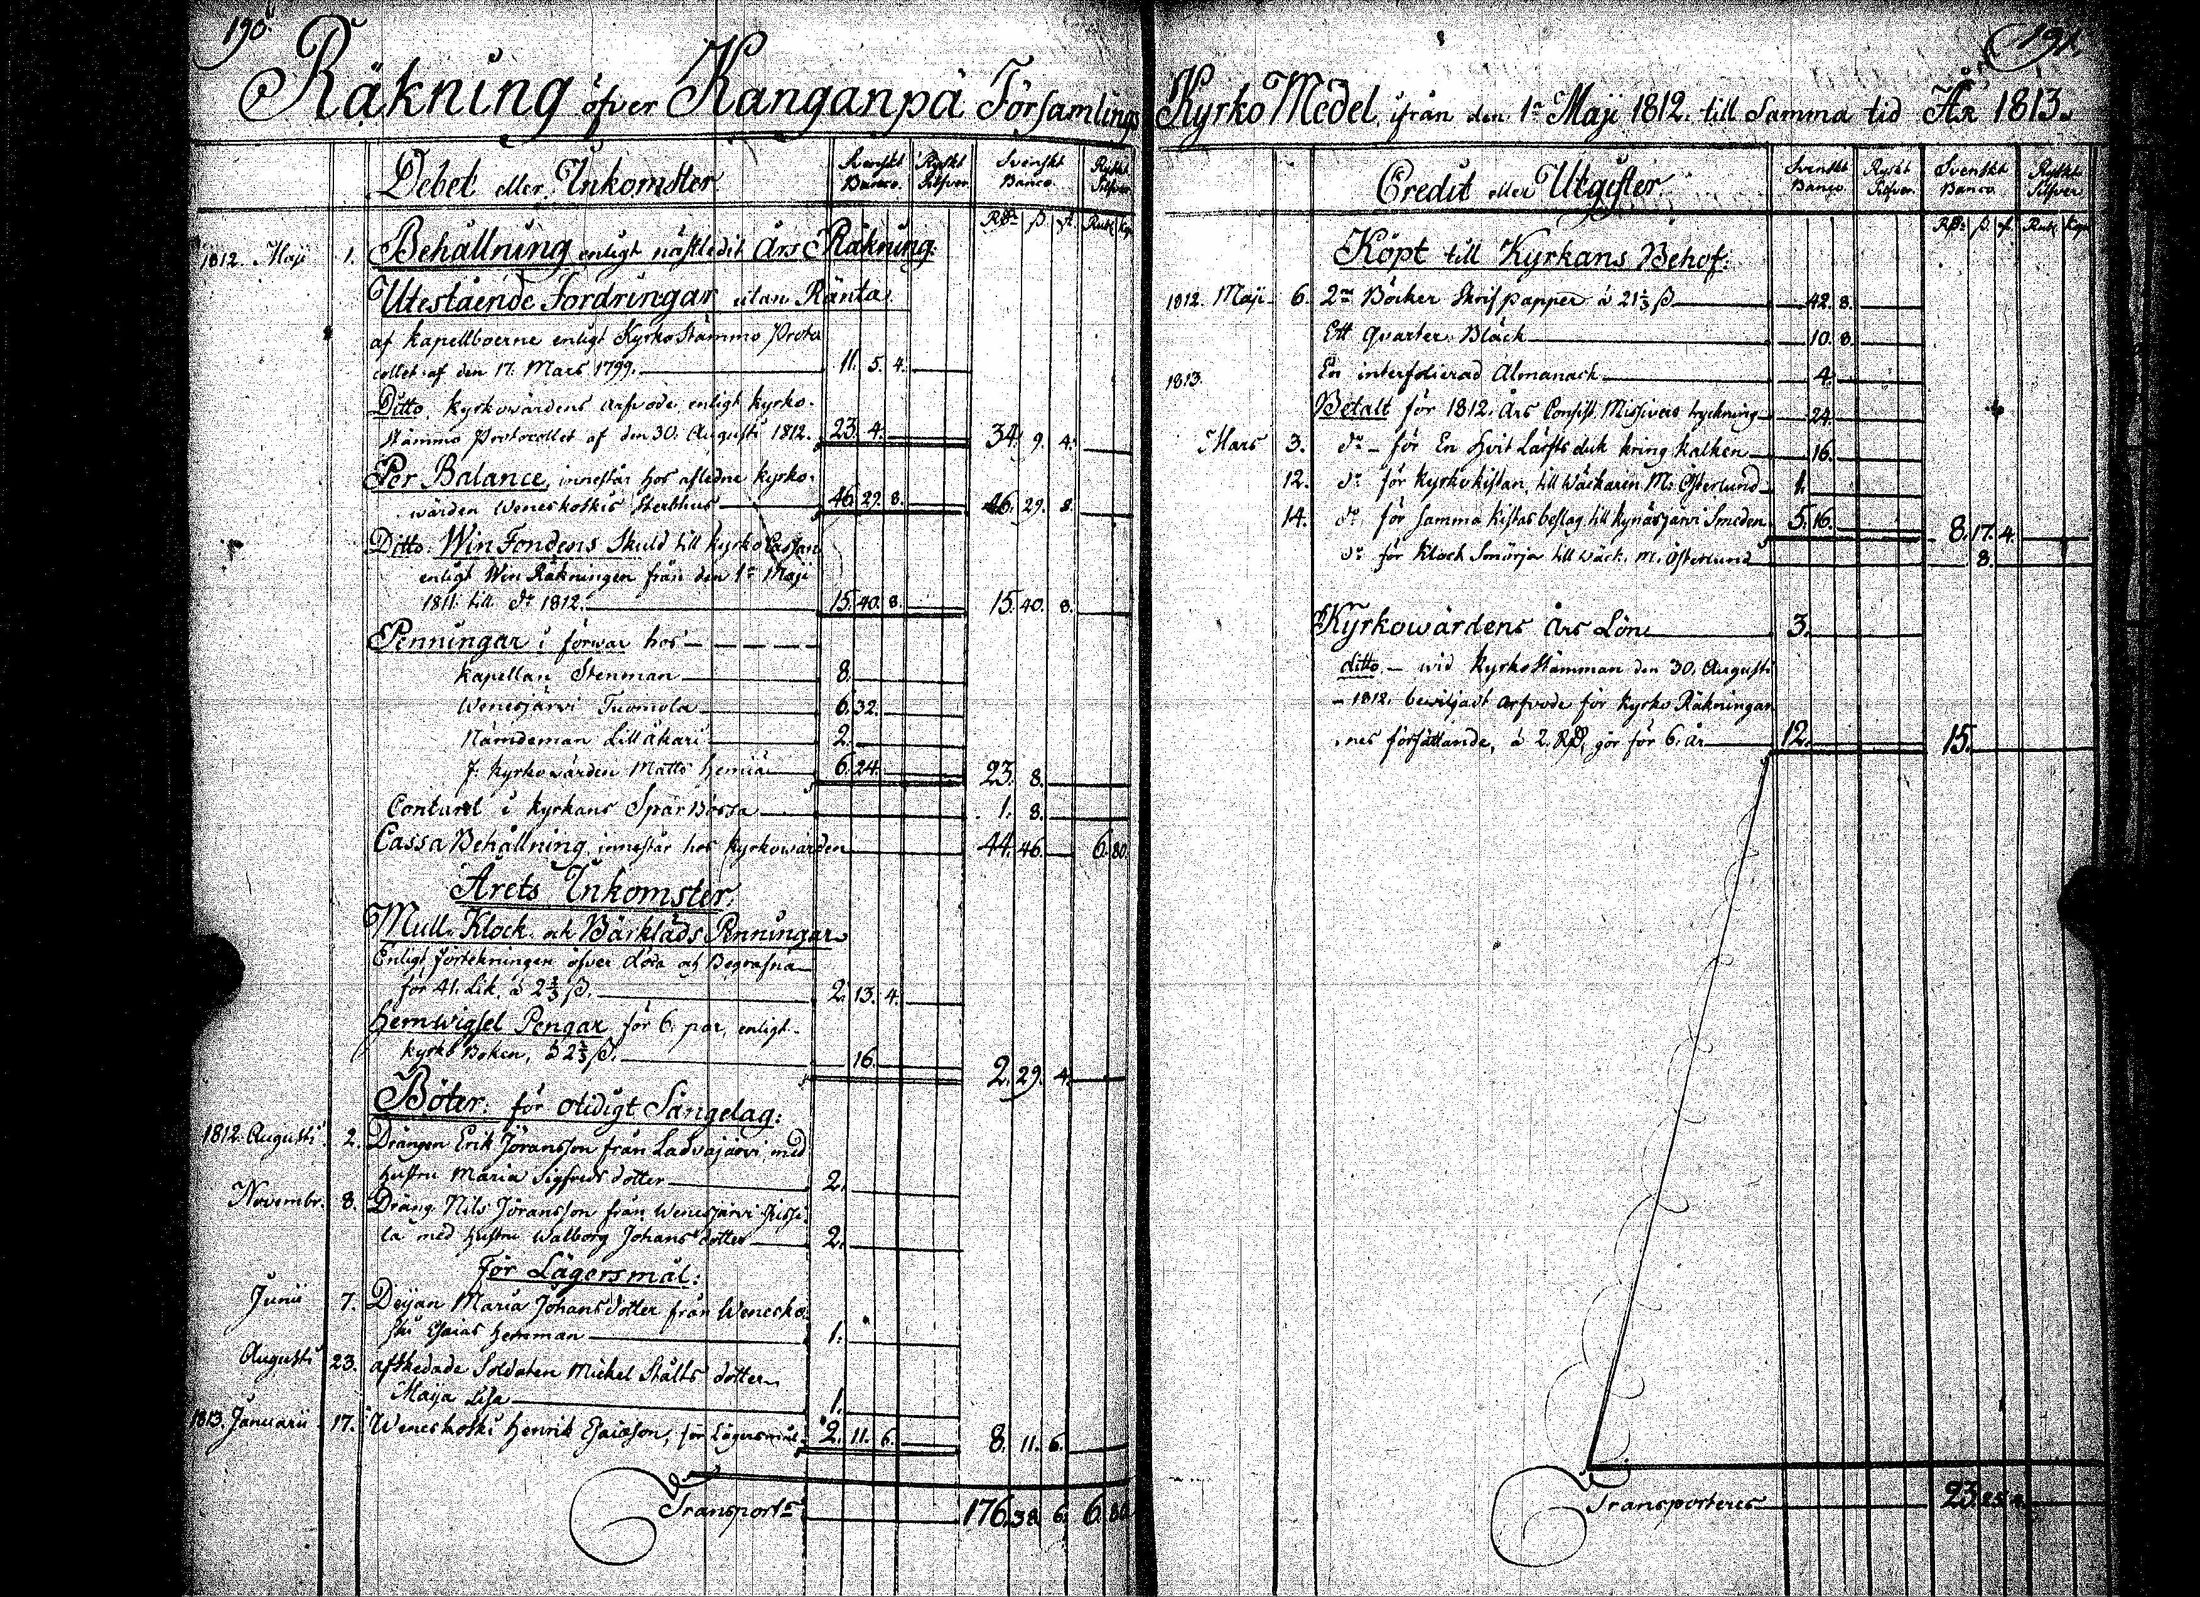 190.
Räkning öfver Kanganpä Församlings
Debet eller Inkomster
Svenskt Banco. Ryskt Silfver. Svenskt Banco. Ryskt Silfver
Rdr ß rst. Rub. Kop.
1812. Maji 1. Behållning enligt nästledit Års Räkning:
Utestående Fordringar utan Ränta.
af Kapellboerne enligt Kyrko Stämmo Proto
collet af den 17. Mars 1799. 11. 5. 4.
Ditto, Kyrkowärdens arfvode enligt Kyrko-
stämmo Protocollet af den 30. Augusti 1812. 23. 4. 34. 9. 4.
Per Balance, innestår hos afledne Kyrko-
wärden Weneskoskis Sterbhus 46. 29. 8. 46. 29. 8.
Ditto. Win Fondens Skuld till Kyrko Cassan
enligt Win Räkningen från den 1a Maji
1811. till do 1812. 15. 40. 8. 15. 40. 8.
Penningar i förwar hos
Kapellan Stenman 8.
Wenesjärvi Tuomola 6. 32.
Nämdeman Lilläkari 2.
f. Kyrkowärden Matts Heniä 6. 24. 23. 8.
Contant i Kyrkans Spar Bössa 1. 8.
Cassa Behållning, innestår hos Kyrkowärden 44. 46. 6. 80.
Årets Inkomster.
Mull- Klock- och Bårkläds Penningar
Enligt förtekningen öfver döda och Begrafna
för 41. Lik, á 2 2/3 ß. 2. 13. 4.
Hemwigsel Pengar för 6. par, enligt
Kyrko Boken, á 2 2/3 ß. 16. 2. 29. 4.
Böter: för otidigt Sängelag:
1812. Augusti 2. Drängen Erik Jöransson från Ladvajärvi med
hustru Maria Sigfreds dotter 2.
Novembr. 8. Dräng Nils Jöransson från Wenesjärvi
la med hustru Walborg Johans dotter 2.
För Lägersmål:
Junii 7. Deijan Maria Johans dotter från Wenesko-
ski Esaias hemman 1.
Augusti 23. afskedade Soldaten Michel Stålts dotter
Maija Lisa 1.
1813. Januarii 17. Weneskoski Henrik Esaiæson, för Lägersmål 2. 11. 6. 8. 11. 6.
Transport 176. 38. 6. 6. 80.
191.
Kyrko Medel, ifrån den 1a Maji 1812. till Samma tid År 1813.
Credit eller Utgifter.
Svenskt Banco. Ryskt Silfver. Svenskt Banco. Ryskt Silfver
Rdr ß rst. Rub. Kop.
Köpt till Kyrkans Behof:
1812. Maji 6. 2ne Böcker Skrifpapper á 21 1/3 ß 42. 8.
Ett Quarter Bläck 10. 8.
1813. En interfolierad Almanack 4.
Betalt för 1812. Års Consist. Missivers tryckning 24.
Mars 3. do för En Hvit Lärftsduk kring Kalken 16.
12. do för Kyrkokistan, till Wäckarin M. Österlund 1.
14. do för samma Kistas beslag till Kynäsjärvi Smeden 5. 16. 8. 17. 4.
do för Klock Smörja till Wäck. M. Österlund 8.
Kyrkowärdens Års Lön 3.
ditto wid Kyrko Stämman den 30. Augusti
1812. bewiljadt arfvode för Kyrko Räkningar-
nes författande, á 2. Rdr, gör för 6. år 12. 15.
Transporteres 23. 25. 4.